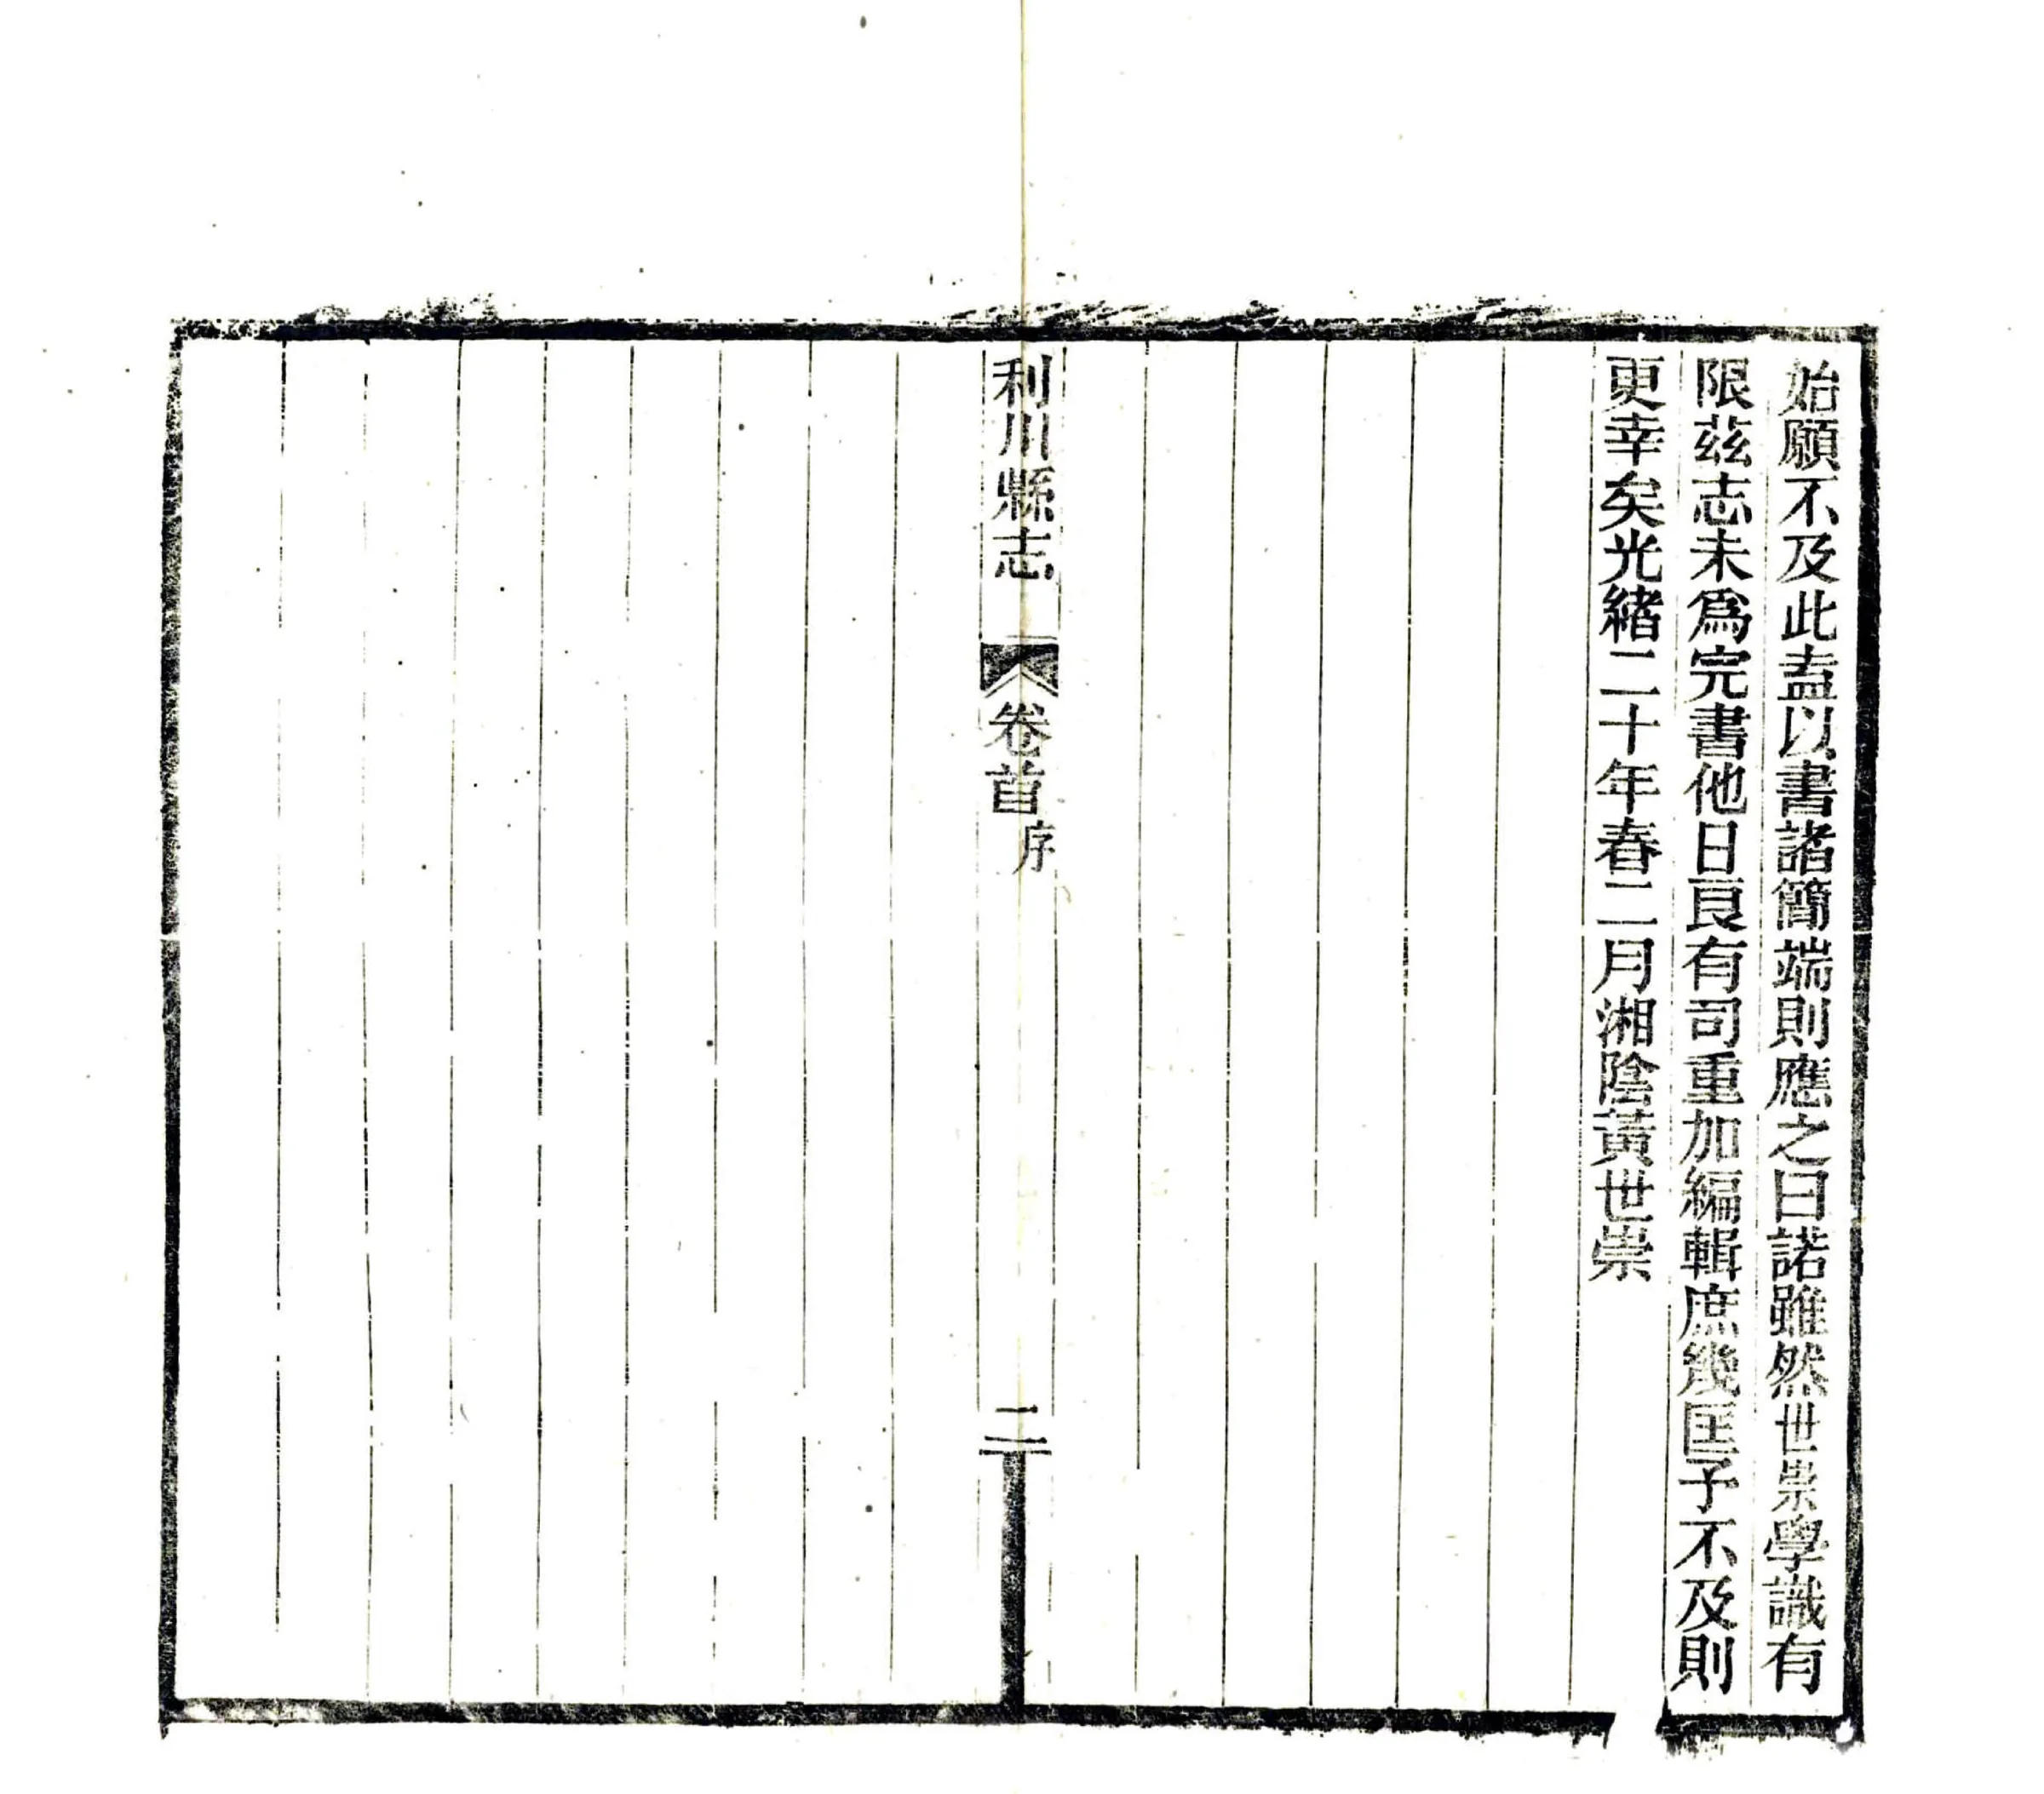 始願不及此盍以書諸簡端則應之曰諾雖然世崇學識有
限茲志未爲完書他日良有司重加編輯庶幾匡予不及則
更幸矣光緒二十年春二月湘陰黃世崇
利川縣志 卷首 序 二